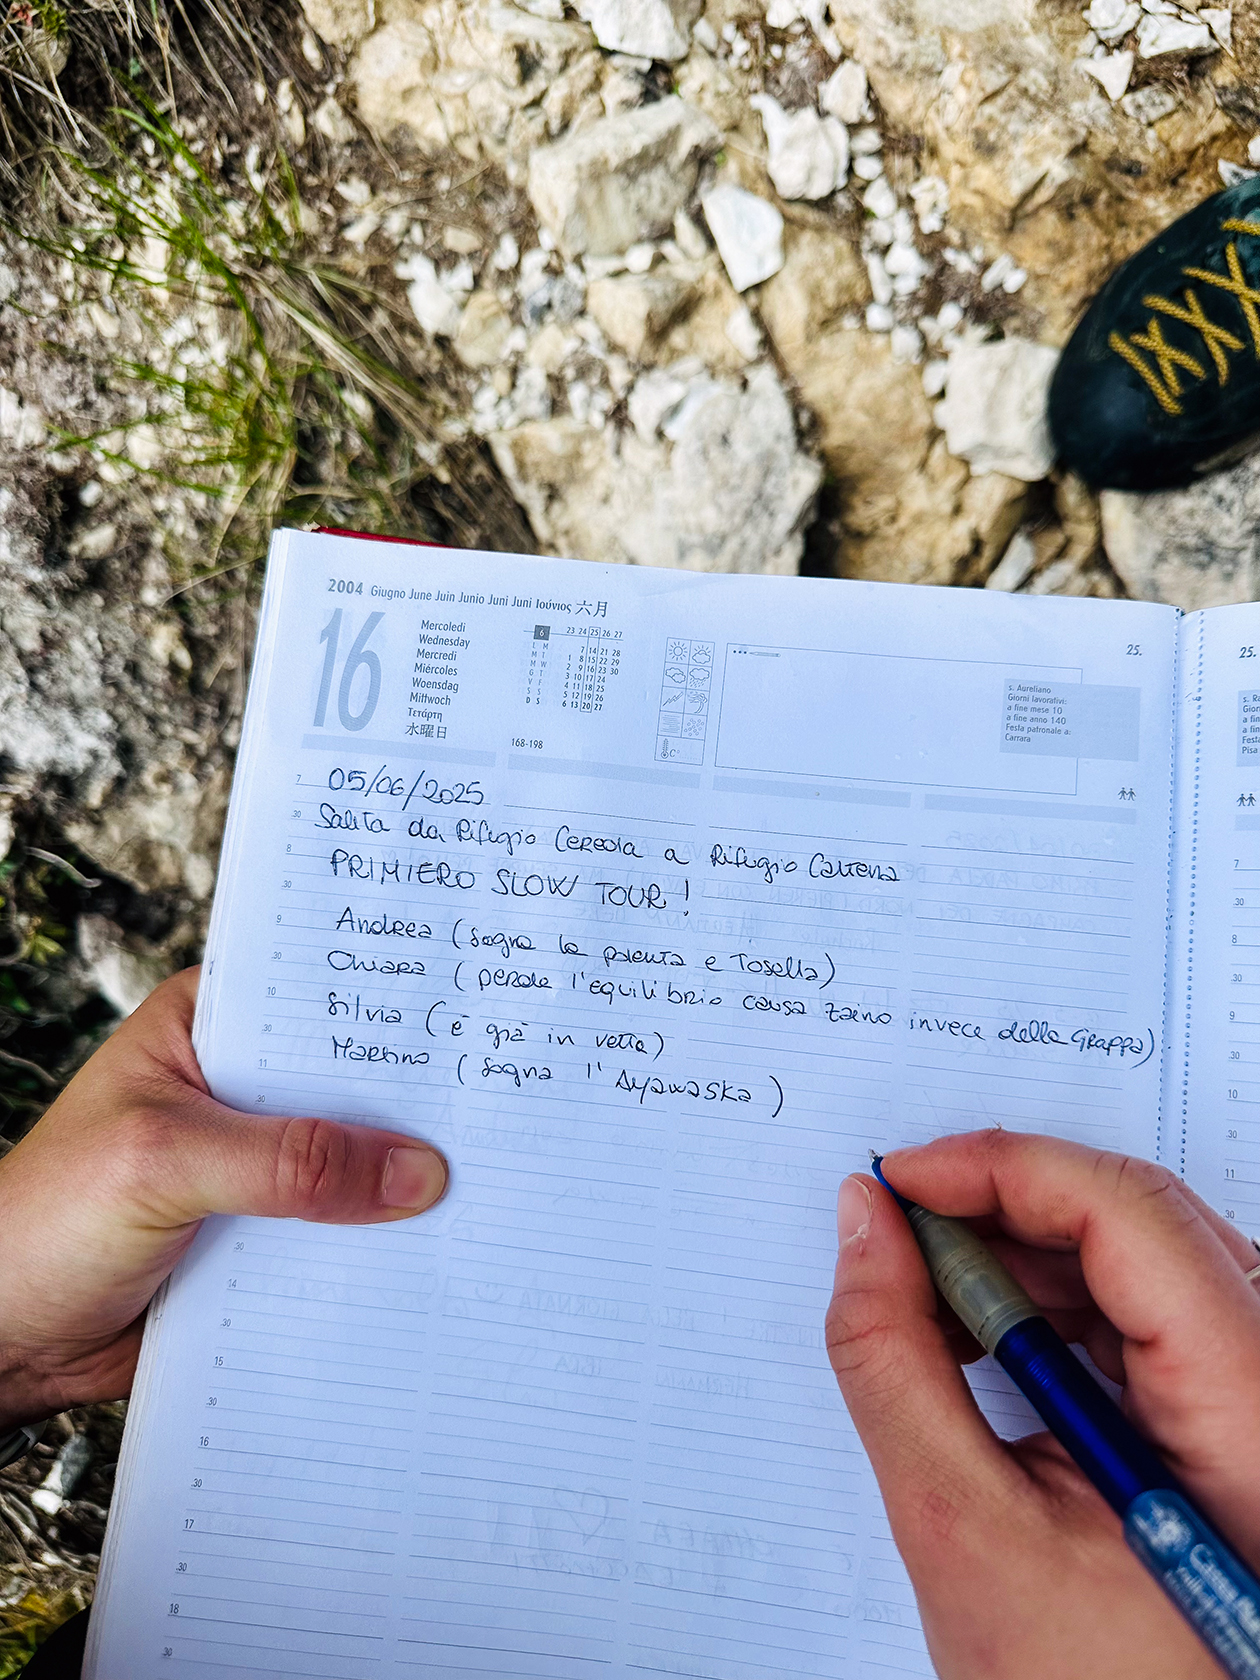 2004 Giugno June Juin Junio Juni Juni Ιούνιος 六月
16
Mercoledì
Wednesday
Mercredi
Miércoles
Woensdag
Mittwoch
Τετάρτη
水曜日
6 23 24 25 26 27
L M 7 14 21 28
M T 1 8 15 22 29
M W 2 9 16 23 30
G T 3 10 17 24
V F 4 11 18 25
S S 5 12 19 26
D S 6 13 20 27
168-198
°C
25.
s. Aureliano
Giorni lavorativi:
a fine mese 10
a fine anno 140
Festa patronale a:
Carrara
7 05/06/2025
30 Salita da Rifugio Cereda a Rifugio Caltena
8 PRIMIERO SLOW TOUR!
30
9 Andrea (sogna la polenta e Tosella)
30 Chiara (perde l'equilibrio causa zaino invece della Grappa)
10 Silvia (è già in vetta)
30 Martino (sogna l'Ayawaska)
11
30
30
14
30
15
30
16
30
17
30
18
30
25.
Pisa
7
30
8
30
9
30
10
30
11
30